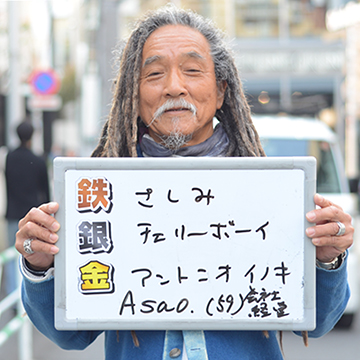 鉄 さしみ
銀 チェリーボーイ
金 アントニオイノキ
Asao. (59) 会社
経営